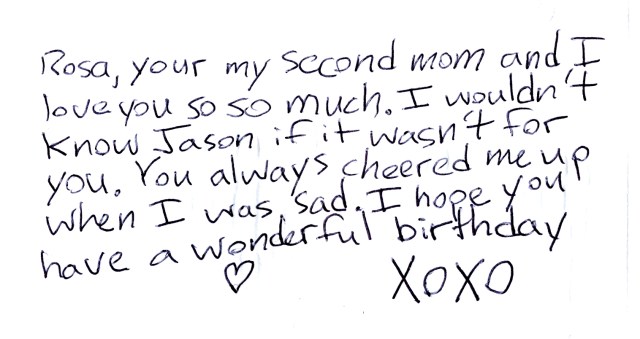 Rosa, your my second mom and I
love you so so much. I wouldn't
know Jason if it wasn't for
you. You always cheered me up
when I was sad. I hope you
have a wonderful birthday
♡ XOXO